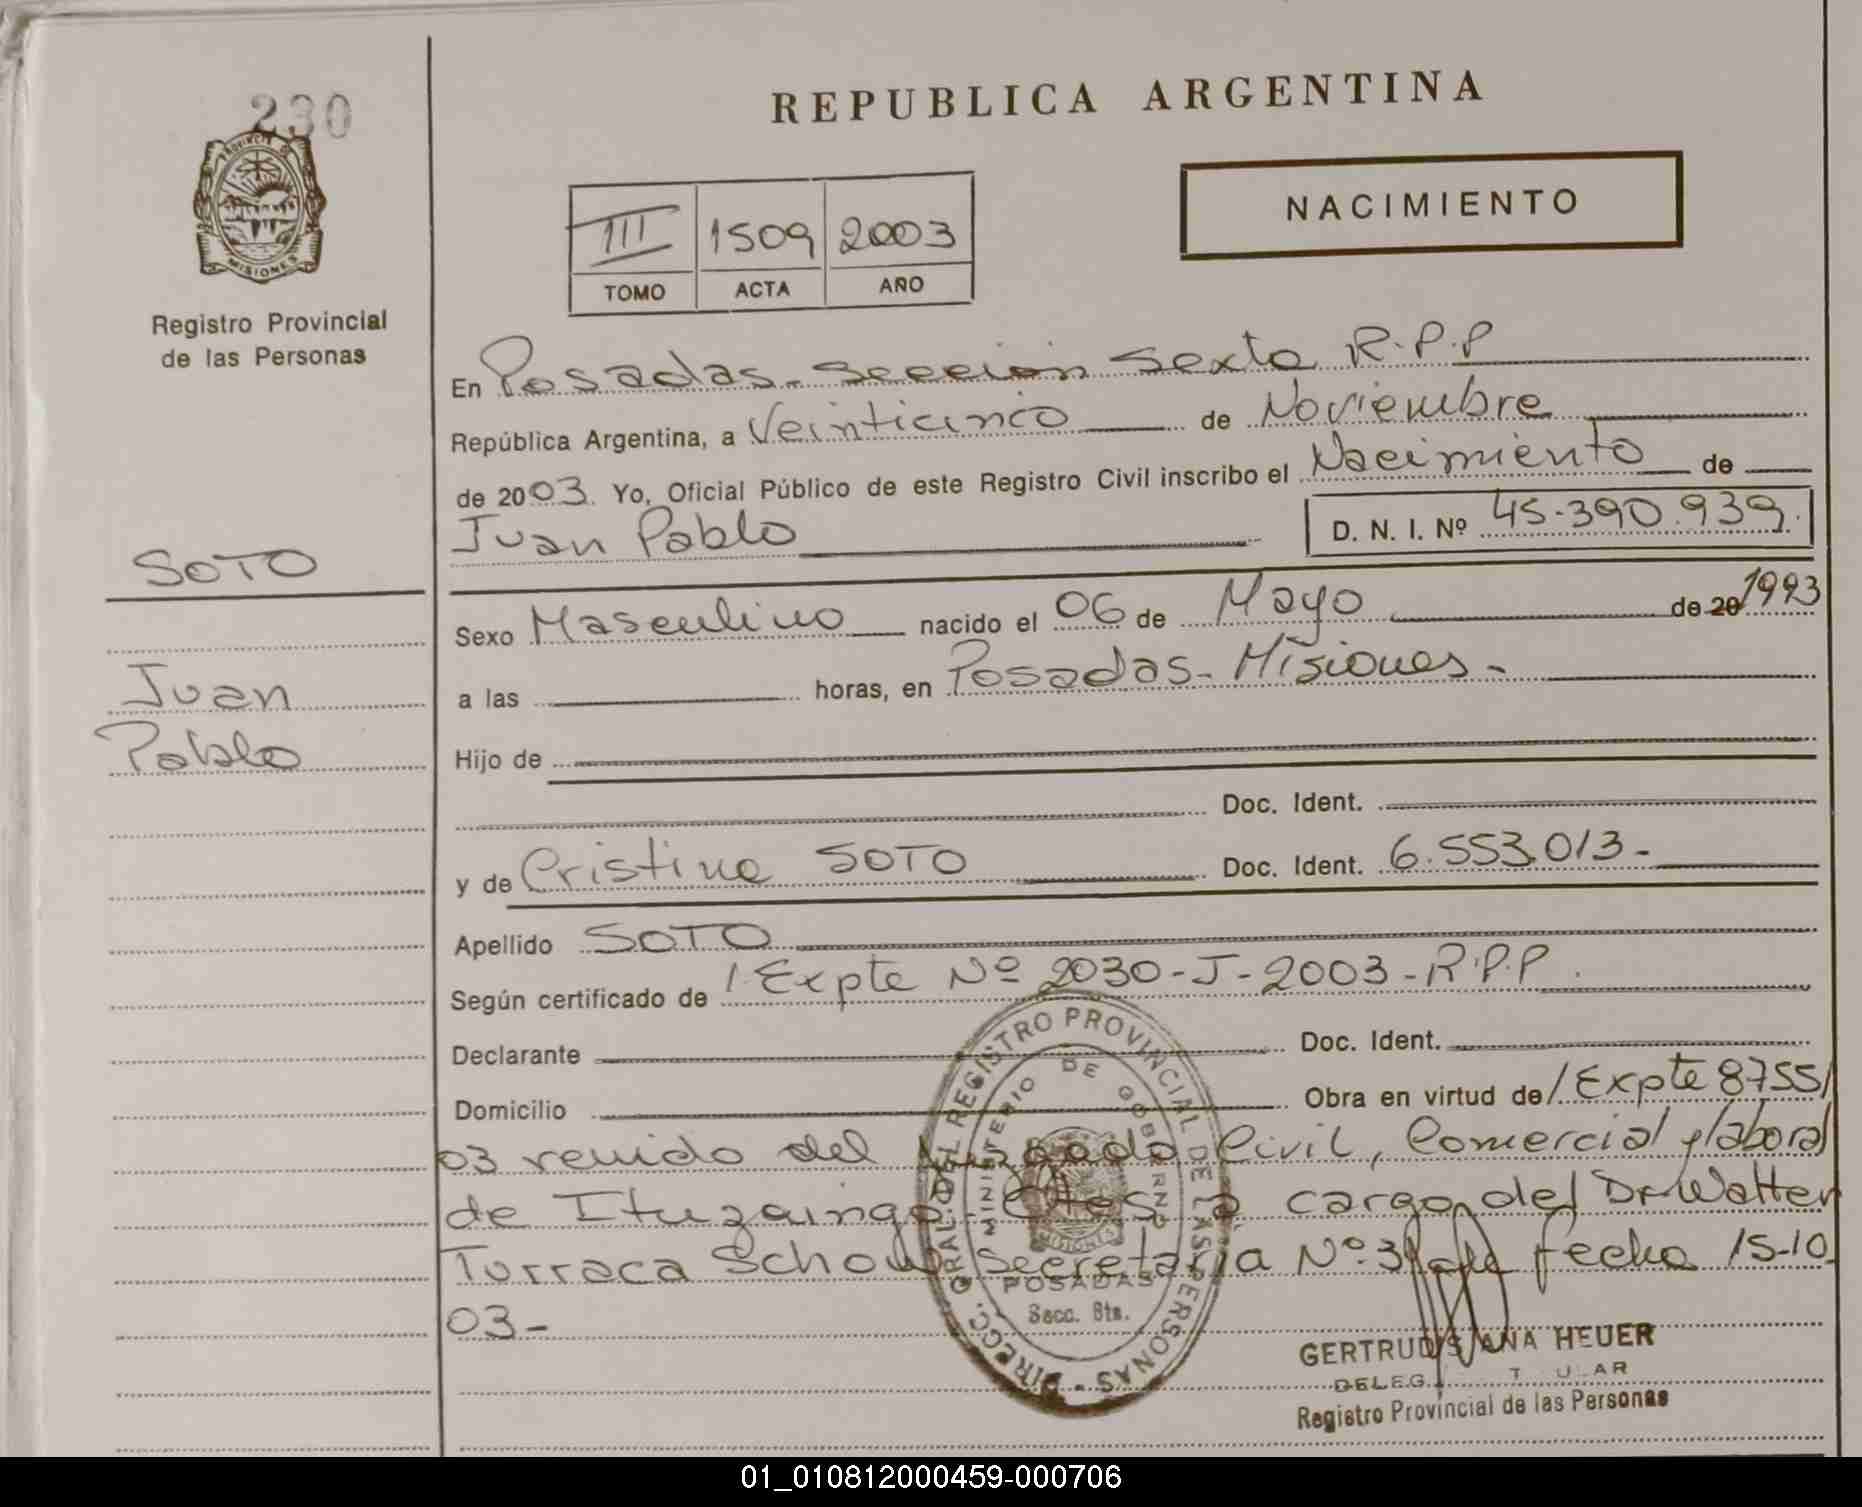 230
REPUBLICA ARGENTINA
PROVINCIA DE MISIONES
Registro Provincial
de las Personas
III 1509 2003
TOMO ACTA AÑO
NACIMIENTO
En Posadas - Sección Sexta R.P.P
República Argentina, a Veinticinco de Noviembre
de 2003. Yo, Oficial Público de este Registro Civil inscribo el Nacimiento de
Juan Pablo D. N. I. Nº 45.390.939.
SOTO
Juan
Pablo
Sexo Masculino nacido el 06 de Mayo de 20 1993
a las horas, en Posadas - Misiones -
Hijo de
Doc. Ident.
y de Cristina SOTO Doc. Ident. 6.553.013-
Apellido SOTO
Según certificado de / Expte Nº 2030-J-2003-R.P.P.
Declarante Doc. Ident.
Domicilio Obra en virtud de / Expte 8755/
03 venido del Juzgado Civil, Comercial y laboral
de Ituzaingo Ctes a cargo del Dr Walter
Turraca Schou Secretaria Nº 3 de fecha 15-10
03-
DIRECC. GRAL. DEL REGISTRO PROVINCIAL DE LAS PERSONAS -
MINISTERIO DE GOBIERNO
MISIONES
POSADAS
Secc. 6ta.
GERTRUDIS ANA HEUER
DELEG. T ULAR
Registro Provincial de las Personas
01_010812000459-000706